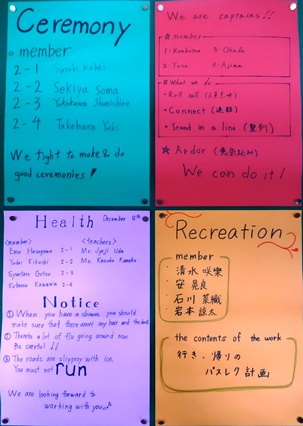 Ceremony
member
2-1 Suzuki
2-2 Sekiya Soma
2-3 Yokokawa Shunichiro
2-4 Takehura Yuki
We fight to make & do
good ceremonies!
We are captains!!
☆ Member
What we do
• Roll call
• Connect (連絡)
• Stand in a line (整列)
☆ Ardor
We can do it!
Health December 8th
(member)
Ema Hasegawa 2-1
Yudai Kikuchi 2-2
Syuntaro Gotou 2-3
Kotarou 2-4
(teachers)
Mr. Jyoji Uda
Ms. Kaneko
Notice
① When you have a shower, you should
make sure that there aren't any hair and the dust.
② There's a lot of flu going around now
Be careful!!
③ The roads are slippery with ice.
You must not run
We are looking forward to
working with you
Recreation
member
・清水 咲樂
・安 晃良
・石川 菜織
・岩本 諒太
the contents of the work
行き、帰りの
バスレク計画